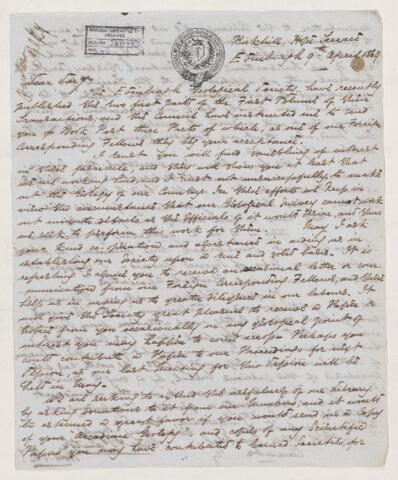 Edinburgh 9th April 1869
Dear Sir,
The Edinburgh Geological Society have recently
published the two first parts of the First Volume of their
Transactions, and the Council have instructed me to send
you by Book Post these Parts of which, as one of our Foreign
Corresponding Fellows they beg your acceptance.
I trust you will find something of interest
in these and they will show you at least that
we are making and I trust not unsuccessfully, to make
out the Geology of our Country. In this effort we keep in
view the circumstances that our Geological Survey cannot work
out minute details as the Officials of it would desire, and thus
we seek to perform this work for them. May I ask
your kind co-operation and assistance in aiding us in
establishing our Society upon a and solid basis. It is
refreshing I assure you to receive an occasional letter or com-
munication from our Foreign Corresponding Fellows, and these
help us in urging us to greater diligence in our labours. It
will give the Society great pleasure to receive a Paper or
Notice from you occasionally on any Geological point of
interest you may happen to come across. Perhaps you
would contribute a Paper to our Proceedings for next
Session, as our last Meeting for this Session will be
held in May.
We are seeking to extend the usefulness of our Library
by asking donations to it from our Members, and it would
be esteemed a great favor if you would send us a Copy
of your "Acadian Geology" and copies of any Scientific
Papers you may have contributed to learned Societies, for